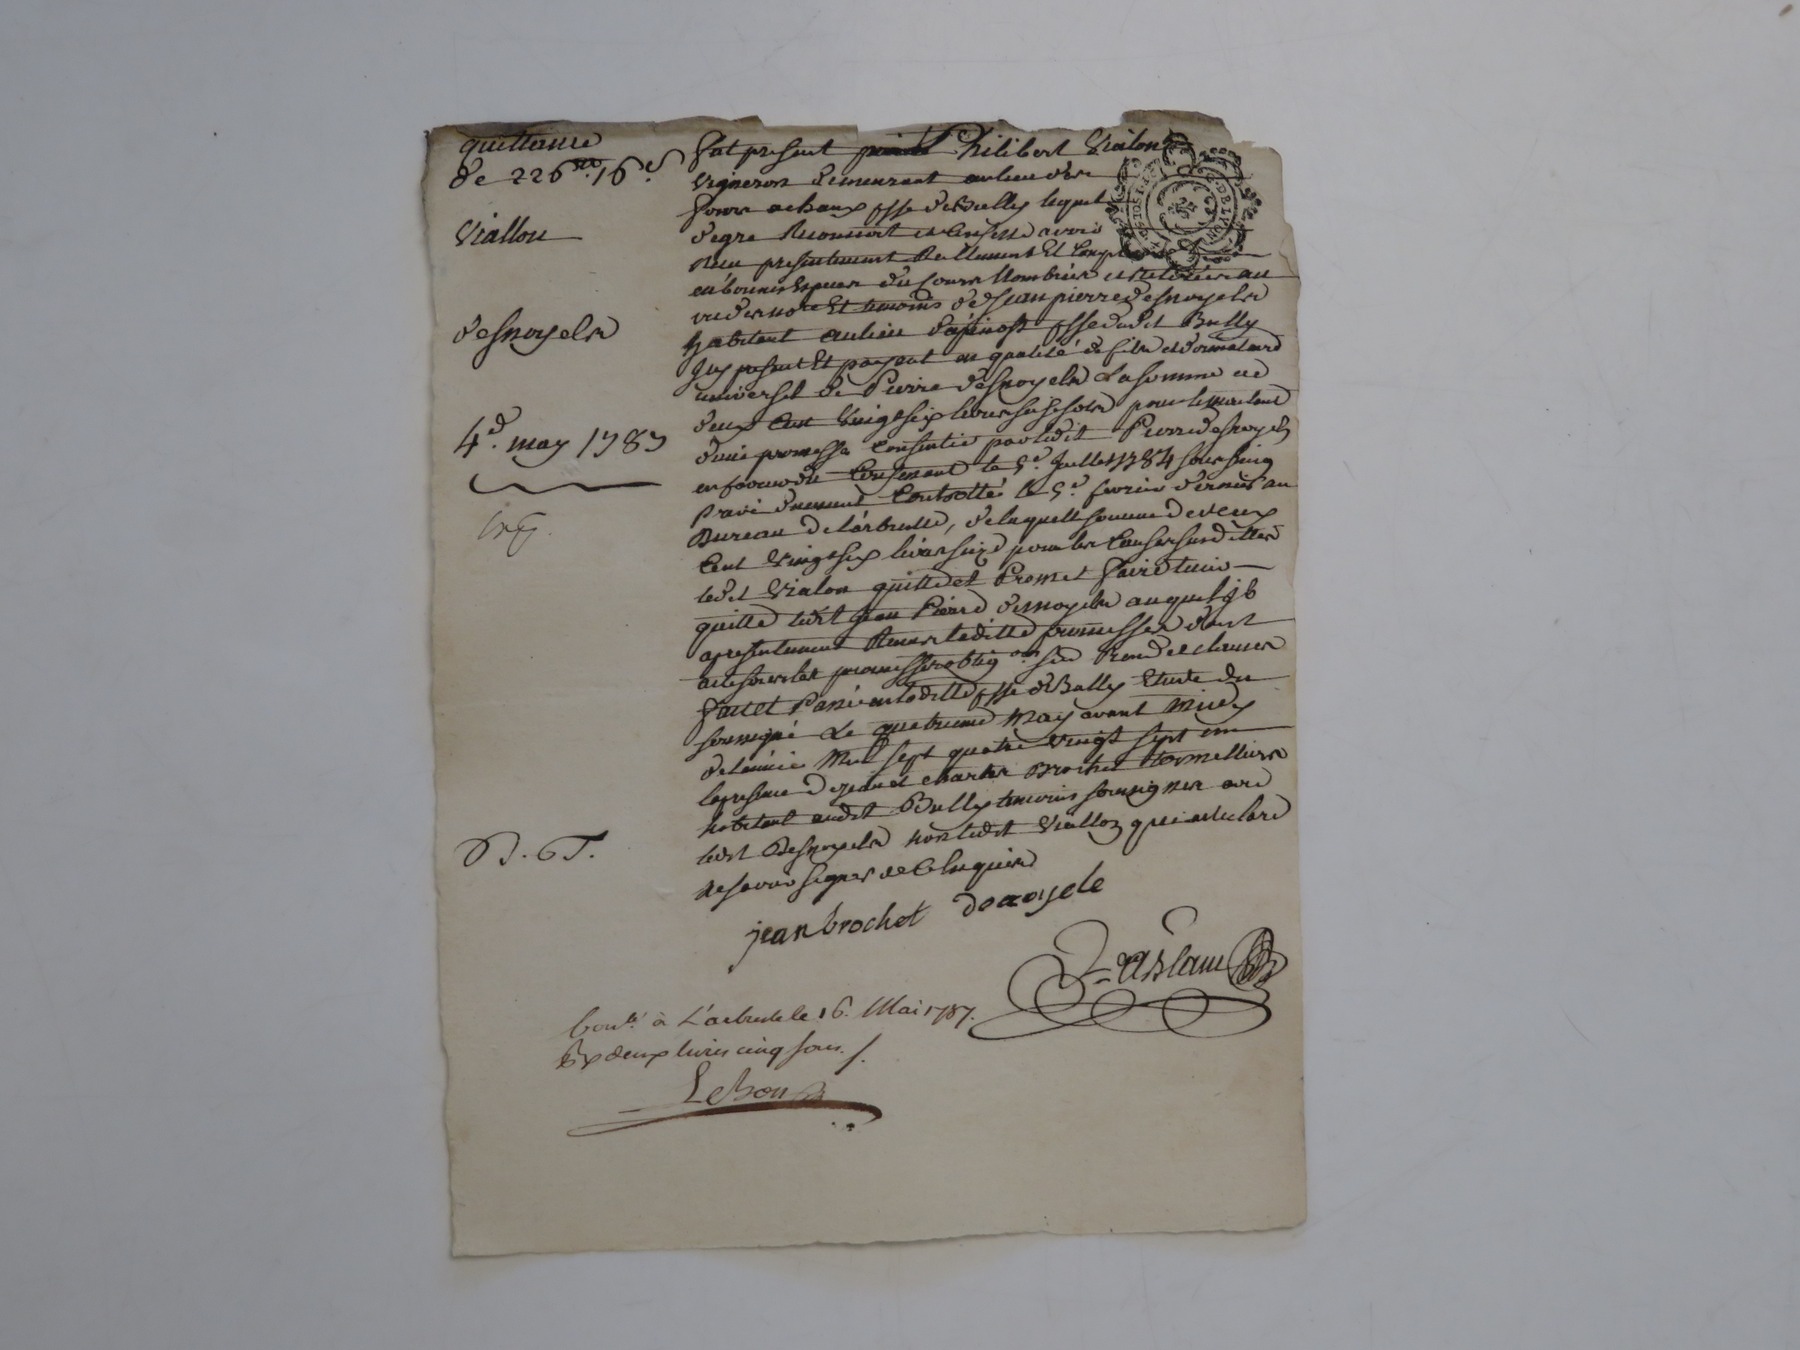 quittance
de 226ᵗᵗ 16ˢ
Viallon
desnoyels
4ᵉ. may 1787
B. T.
fut present Philibert Vialon
vigneron demeurant au lieu des
fours a chaux psse de Bully lequel
de gre Reconnoit et Confesse avoir
Reçu presentement Reellement Et Comptant
en bonnes Espeses du Cours Nombrées et Retirées au
vu des no.re Et temoins de Jean pierre desnoyels
habitant au lieu dapinost psse dudit Bully
Icy present Et payent en qualité de fils et donnataire
universel de Pierre desnoyels La somme de
deux Cent Vingt six livres seize sols pour le montant
d'une promesse Consentie par ledit Pierre desnoyels
en faveur du Confessant le 5.e Juillet 1784 sous seing
Privé duement Controllée le 5.e fevrier dernier au
Bureau de Larbresle, de laquelle somme de deux
Cent Vingt six livres seize pour les Causes susdittes
ledit Vialon quitte et Promet faire tenir
quitte ledit Jean Pierre desnoyels auquel il
a presentement Remis laditte promesse dont
acte sous les promesses oblig.ons Renon.on et clauses
fait et Passé en laditte psse de Bully Etude du
soussigné Le quatrieme May avant Midy
de lannée Mil sept quatre Vingt sept en
la presence de Jean et Charles Brochet tonnelliers
habitant audit Bully temoins soussignes avec
ledit Desnoyels non ledit Viallon qui a declaré
ne savoir signer de Ce Enquis
jean brochet desnoyele
Con.lé à L'arbresle le 16. Mai 1787.
deux livres cinq sous.
Lebon